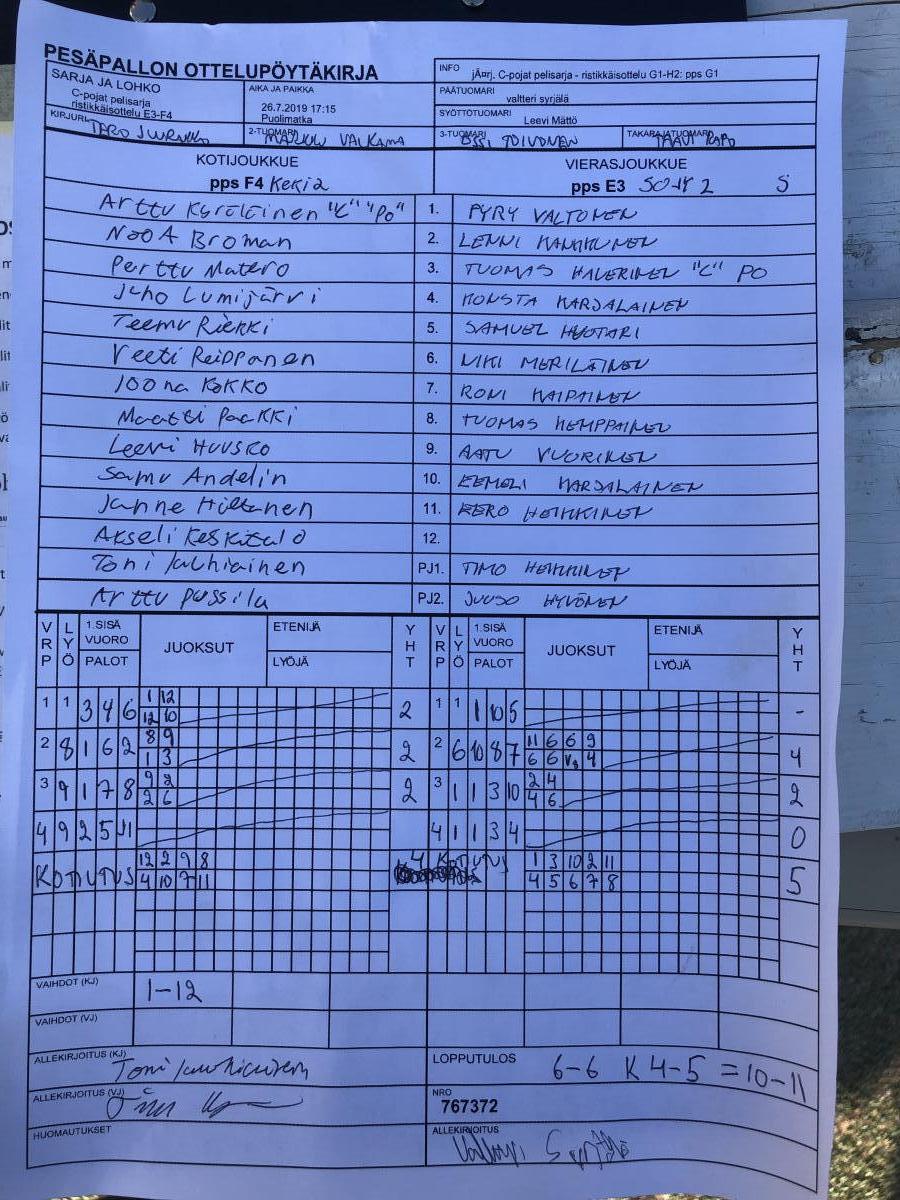 PESÄPALLON OTTELUPÖYTÄKIRJA
SARJA JA LOHKO
C-pojat pelisarja
ristikkäisottelu E3-F4
AIKA JA PAIKKA
26.7.2019 17:15
Puolimatka
INFO jÃ¤rj. C-pojat pelisarja - ristikkäisottelu G1-H2: pps G1
PÄÄTUOMARI
valtteri syrjälä
SYÖTTÖTUOMARI
Leevi Mättö
KIRJURI TERO
2-TUOMARI MARKKU VALKAMA
3-TUOMARI OSSI TOIVONEN
TAKARAJATUOMARI
KOTIJOUKKUE
pps F4 Keki 2
VIERASJOUKKUE
pps E3 SOJY 2 S
Arttu "C" "PO" 1. PYRY VALTONEN
Nooa Broman 2. LENNI KANKKUNEN
Perttu Matero 3. TUOMAS HALERINEN "C" PO
Juho Lumijärvi 4. KONSTA KARJALAINEN
Teemu Riekki 5. SAMUEL HUOTARI
Veeti Reipponen 6. NIKI MERILÄINEN
Joona Kokko 7. RONI KAIPAINEN
Maatti Paakki 8. TUOMAS KEMPPAINEN
Leevi Huusko 9. AATU VUORINEN
Samu Andelin 10. EEMELI KARJALAINEN
Janne Hiltunen 11. EERO HEIKKINEN
Akseli Keskitalo 12.
Toni Jauhiainen PJ1. TIMO HEIKKINEN
Arttu Pussila PJ2. JUUSO HYVÖNEN
VRP LYÖ 1.SISÄ VUORO PALOT JUOKSUT ETENIJÄ LYÖJÄ YHT VRP LYÖ 1.SISÄ VUORO PALOT JUOKSUT ETENIJÄ LYÖJÄ YHT
1 1 3 4 6 1 12 2 1 1 1 10 5 -
12 10
2 8 1 6 2 8 9 2 2 6 10 8 7 11 6 6 9 4
1 3 6 6 4
3 9 1 7 8 9 2 2 3 1 1 3 10 2 4 2
2 6 4 6
4 9 2 5 11 4 1 1 3 4 0
KOTIUTUS 12 2 9 8 4 KOTIUTUS 1 3 10 2 11 5
4 10 7 11 4 5 6 7 8
VAIHDOT (KJ) 1-12
VAIHDOT (VJ)
ALLEKIRJOITUS (KJ) Toni Jauhiainen
LOPPUTULOS 6-6 K 4-5 = 10-11
ALLEKIRJOITUS (VJ)
NRO
767372
HUOMAUTUKSET
ALLEKIRJOITUS